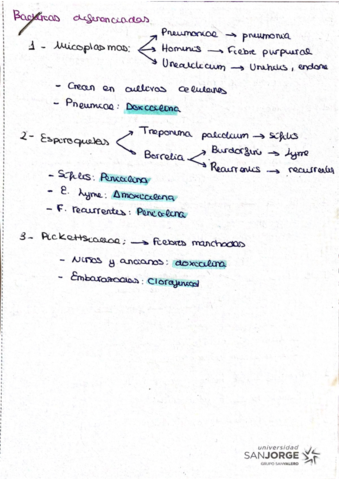 Bacterias diferenciadas
Pneumoniae → pneumonia
1 - Micoplasmas: Hominis → Fiebre purpural
Urealiticum → Uretritis, endome
- Crean en cultivos celulares
- Pneumoiae: Doxiciclina
2 - Espiroquetas Treponema pallidum → sífilis
Borrelia Burdorferi → lyme
Recurrentis → recurrentes
- Sífilis: Penicilina
- E. lyme: Amoxicilina
- F. recurrentes: Penicilina
3 - Rickettsiaceae: → Fiebres manchadas
- Niños y ancianos: doxiciclina
- Embarazadas: Clorafenicol
universidad
SANJORGE
GRUPO SANVALERO